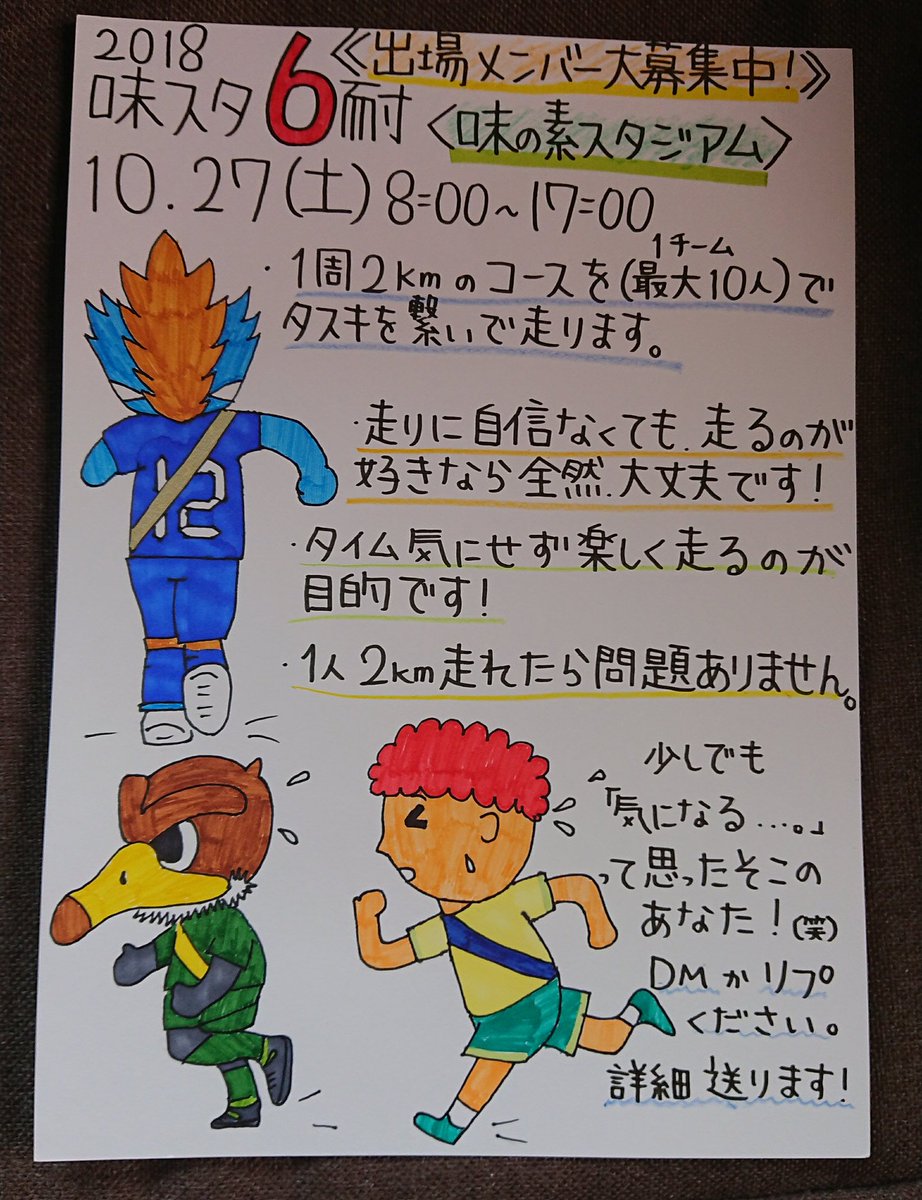 2018
《出場メンバー大募集中!》
味スタ6耐
〈味の素スタジアム〉
10.27(土)8:00~17:00
1チーム
・1周2kmのコースを(最大10人)で
タスキを繋いで走ります。
・走りに自信なくても、走るのが
好きなら全然、大丈夫です!
・タイム気にせず楽しく走るのが
目的です!
・1人2km走れたら問題ありません。
12
少しでも
「気になる...。」
って思ったそこの
あなた!(笑)
DMかリプ
ください。
詳細送ります!